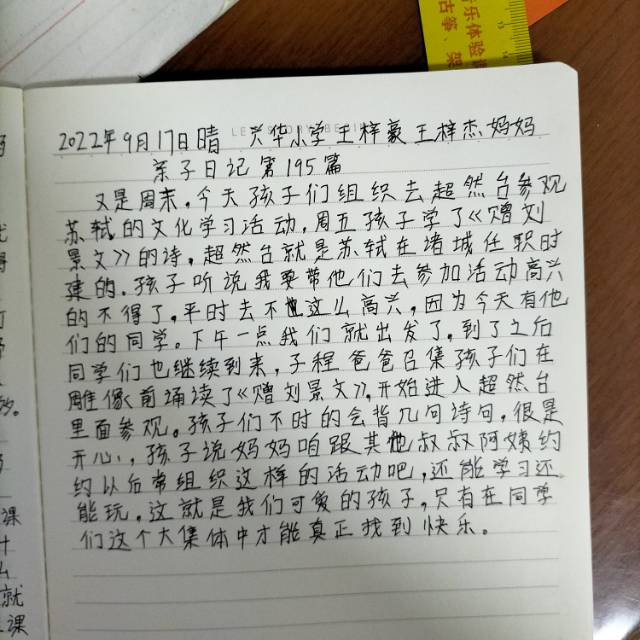 乐体验课
古筝、架
2022年9月17日晴 兴华小学王梓豪王梓杰妈妈
亲子日记第195篇
又是周末,今天孩子们组织去超然台参观
苏轼的文化学习活动,周五孩子学了《赠刘
景文》的诗,超然台就是苏轼在诸城任职时
建的.孩子听说我要带他们去参加活动高兴
的不得了,平时去不这么高兴,因为今天有他
们的同学。下午一点我们就出发了,到了之后
同学们也继续到来,子程爸爸召集孩子们在
雕像前诵读了《赠刘景文》,开始进入超然台
里面参观。孩子们不时的会背几句诗句,很是
开心,孩子说妈妈咱跟其他叔叔阿姨约
约以后常组织这样的活动吧,还能学习还
能玩。这就是我们可爱的孩子,只有在同学
们这个大集体中才能真正找到快乐。
课
就
课